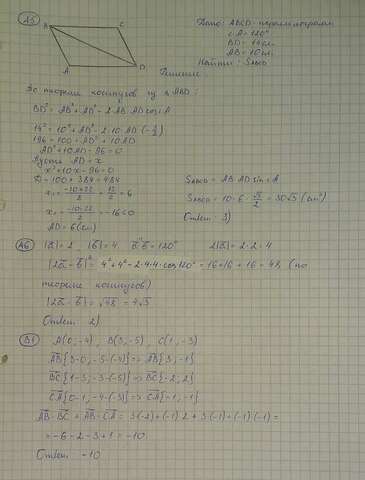 А5
Дано: ABCD - параллелограмм
∠A = 120°
BD = 14 см
AB = 10 см
Найти: SABCD
B C
A D
Решение
По теореме косинусов из △ABD:
BD² = AB² + AD² - 2·AB·AD cos∠A
14² = 10² + AD² - 2·10·AD·(-1/2)
196 = 100 + AD² + 10AD
AD² + 10AD - 96 = 0
Пусть AD = x
x² + 10x - 96 = 0
D = 100 + 384 = 484
x₁ = (-10+22)/2 = 12/2 = 6
x₂ = (-10-22)/2 = -16 < 0
AD = 6 (см)
SABCD = AB·AD sin∠A
SABCD = 10·6·√3/2 = 30√3 (см²)
Ответ: 3)
А6 |a| = 2, |b| = 4 a^b = 120° 2|a| = 2·2 = 4
|2a - b|² = 4² + 4² - 2·4·4·cos120° = 16 + 16 + 16 = 48 (по
теореме косинусов)
|2a - b| = √48 = 4√3
Ответ: 2)
В1 A(0; -4), B(3; -5), C(1; -3)
AB{3-0; -5-(-4)} => AB{3; -1}
BC{1-3; -3-(-5)} => BC{-2; 2}
CA{0-1; -4-(-3)} => CA{-1; -1}
AB·BC + AB·CA = 3·(-2) + (-1)·2 + 3·(-1) + (-1)·(-1) =
= -6 - 2 - 3 + 1 = -10
Ответ: -10